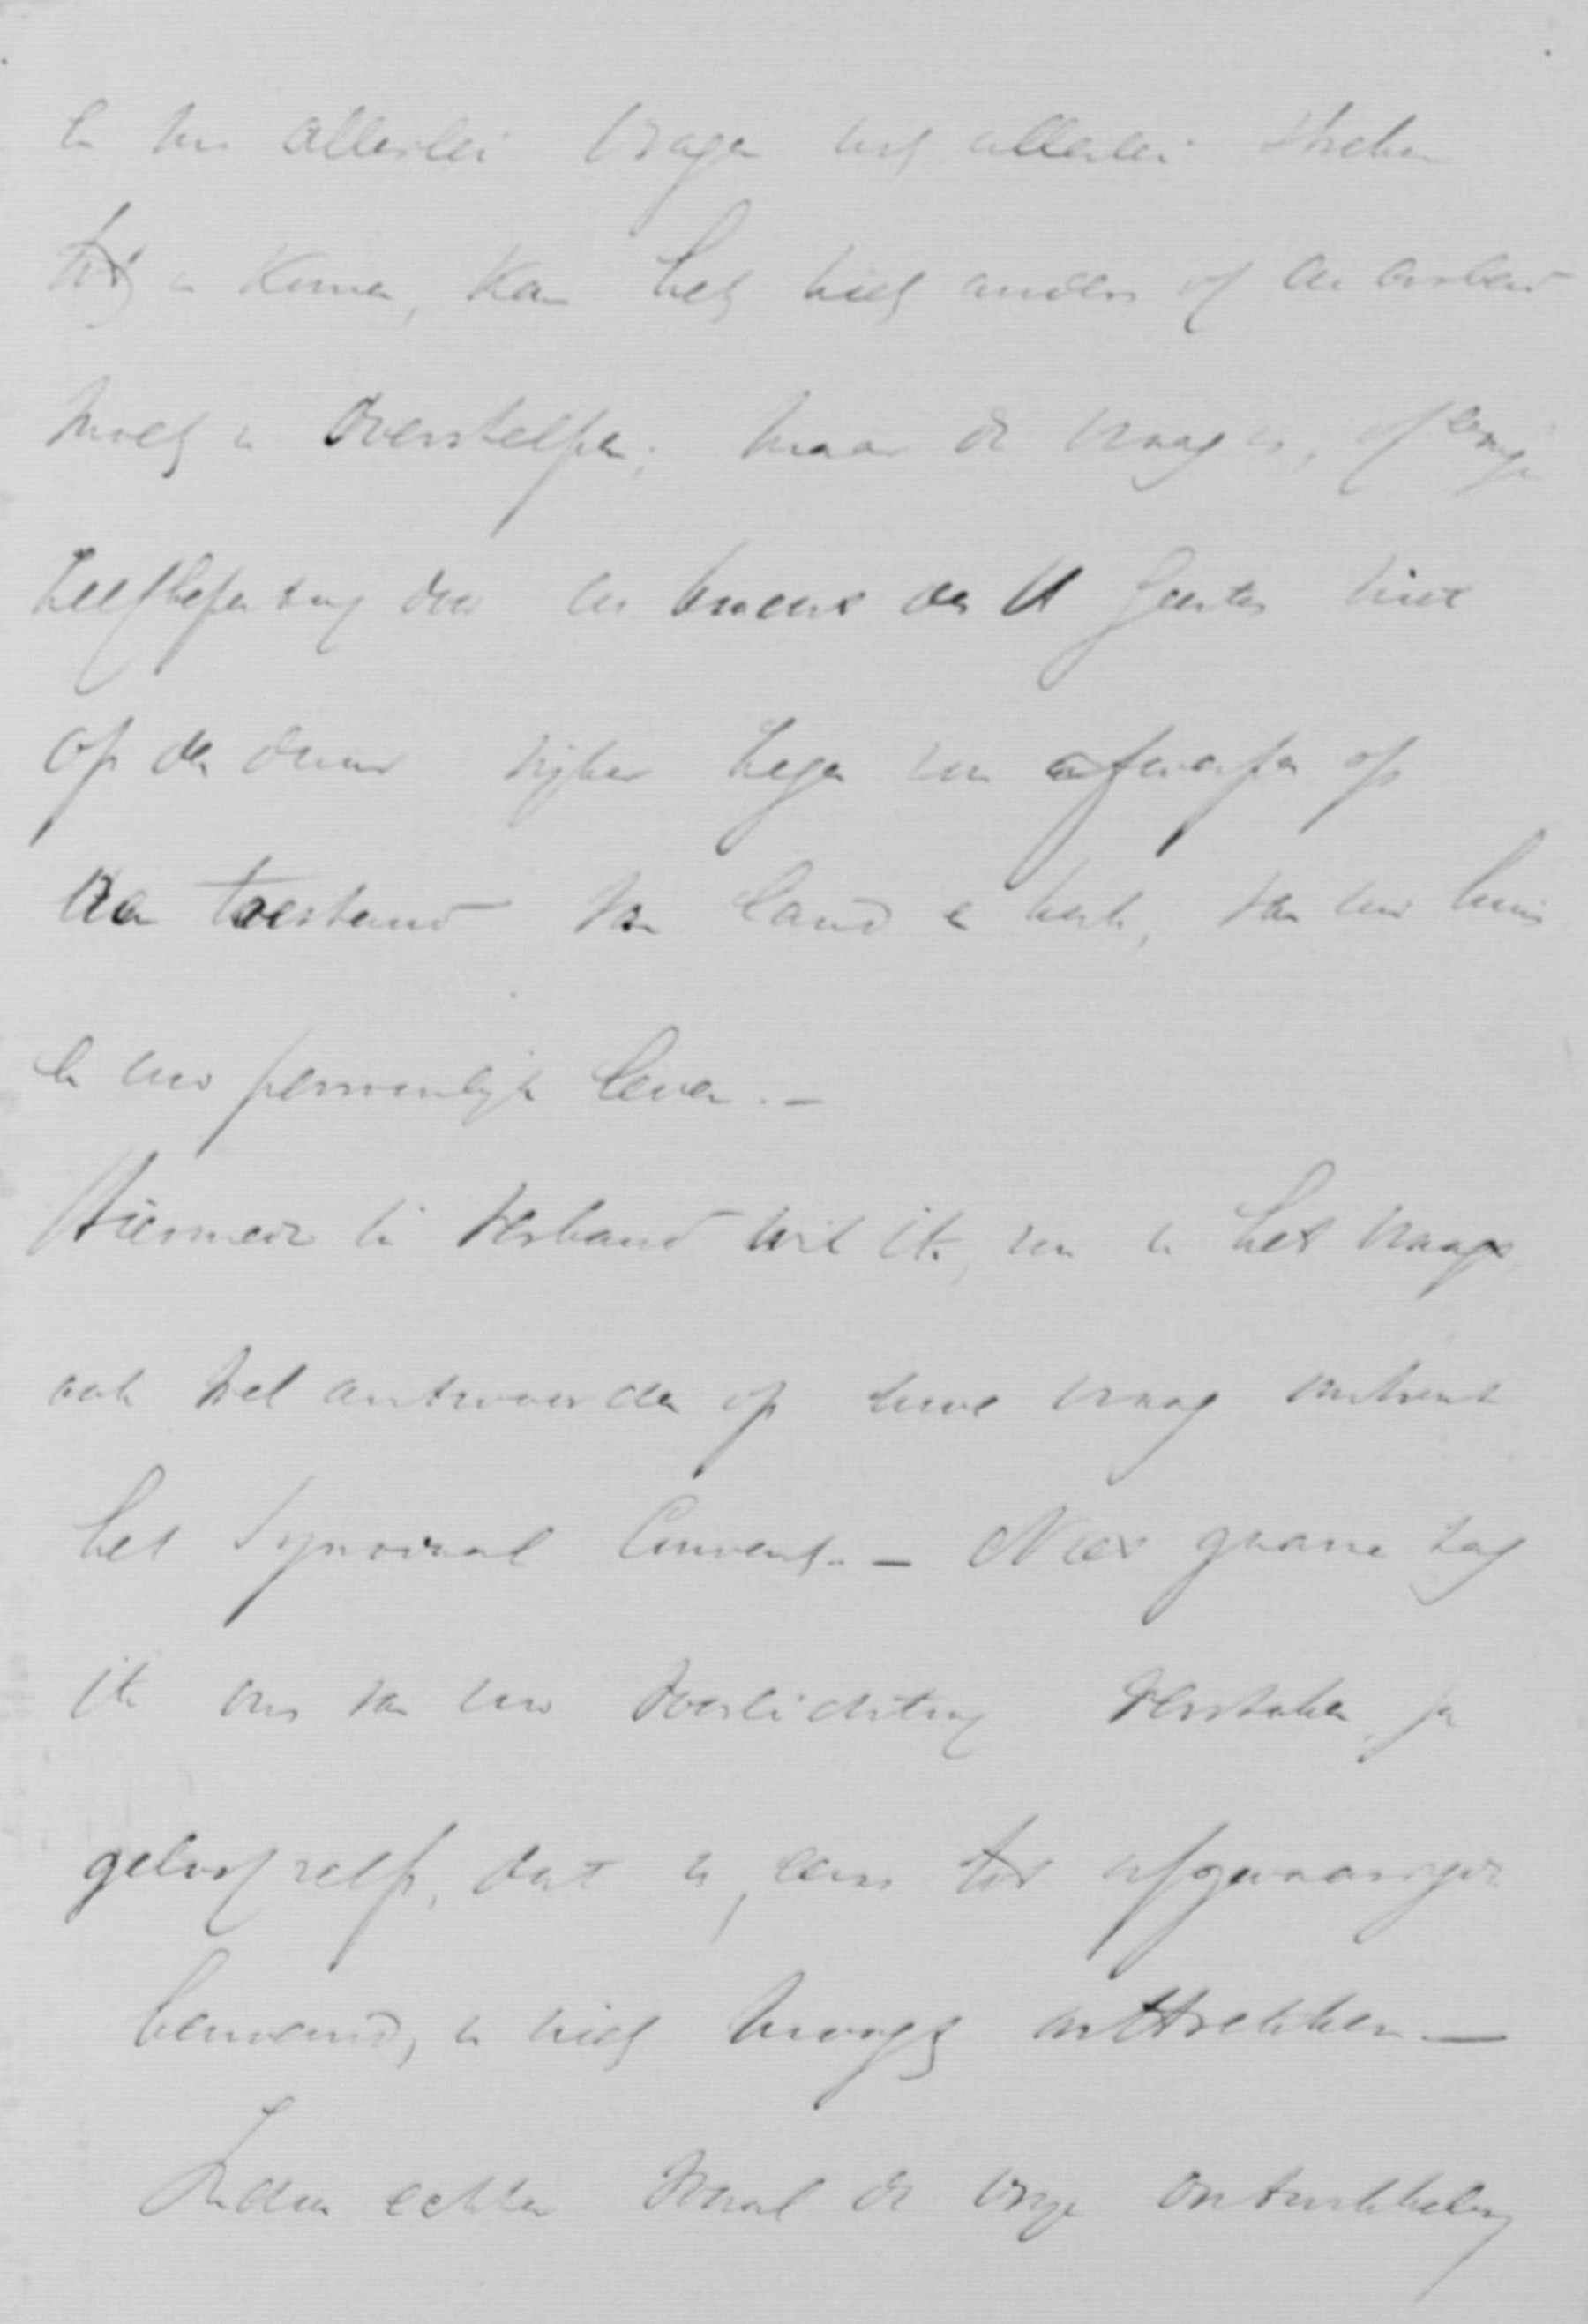 En nu allerlei vragen uit allerlei streken
tot u komen, kan het niet anders of de arbeid
moet u overstelpen; maar de vraag is, of enige
zelfbeperking door de keuze des Geestes niet
op den duur rijker zegen zou afwerpen op
den toestand van land en kerk, van uw huis
en uw persoonlijk leven. —
Hiermede in verband wil ik, nu u het vraagt,
ook wel antwoorden op uwe vraag omtrent
het Synodaal Convent. — Niet gaarne zag
ik ons van uw voorlichting verstoken, ja
geloof zelfs, dat u, eens tot afgevaardigde
benoemd, u niet moogt onttrekken —
Indien echter vooral de vrije ontwikkeling